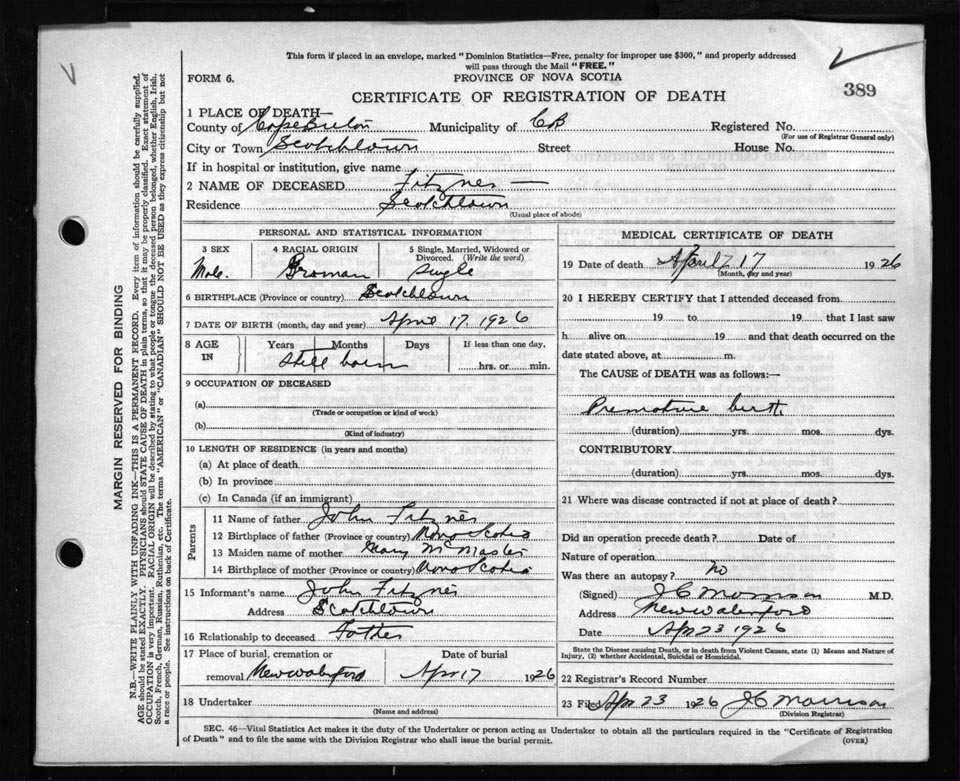 This form if placed in an envelope, marked "Dominion Statistics—Free, penalty for improper use $300," and properly addressed
will pass through the Mail "FREE."
FORM 6.
PROVINCE OF NOVA SCOTIA
CERTIFICATE OF REGISTRATION OF DEATH
389
1 PLACE OF DEATH—
County of Cape Breton Municipality of CB Registered No.
(For use of Registrar General only)
City or Town Scotchtown Street House No.
If in hospital or institution, give name
2 NAME OF DECEASED Fitznes —
Residence Scotchtown
(Usual place of abode)
PERSONAL AND STATISTICAL INFORMATION
3 SEX 4 RACIAL ORIGIN 5 Single, Married, Widowed or Divorced. (Write the word)
Male. Single
6 BIRTHPLACE (Province or country) Scotchtown
7 DATE OF BIRTH (month, day and year) April 17. 1926
8 AGE IN Years Months Days If less than one day,
Still born hrs. or min.
9 OCCUPATION OF DECEASED
(a)
(Trade or occupation or kind of work)
(b)
(Kind of industry)
10 LENGTH OF RESIDENCE (in years and months)
(a) At place of death
(b) In province
(c) In Canada (if an immigrant)
Parents
11 Name of father John Fitznes
12 Birthplace of father (Province or country) Nova Scotia
13 Maiden name of mother Mary McMaster
14 Birthplace of mother (Province or country) Nova Scotia
15 Informant's name John Fitznes
Address Scotchtown
16 Relationship to deceased Father
17 Place of burial, cremation or removal Date of burial
New Waterford Apr 17 1926
18 Undertaker
(Name and address)
MEDICAL CERTIFICATE OF DEATH
19 Date of death April 17 1926
(Month, day and year)
20 I HEREBY CERTIFY that I attended deceased from
19 to 19 that I last saw
h alive on 19 and that death occurred on the
date stated above, at m.
The CAUSE of DEATH was as follows:—
Premature birth
(duration) yrs. mos. dys.
CONTRIBUTORY
(duration) yrs. mos. dys.
21 Where was disease contracted if not at place of death?
Did an operation precede death? Date of
Nature of operation
Was there an autopsy? no
(Signed) J C Morrison M.D.
Address New Waterford
Date Apr 23 1926
State the Disease causing Death, or in death from Violent Causes, state (1) Means and Nature of
Injury, (2) whether Accidental, Suicidal or Homicidal.
22 Registrar's Record Number
23 Filed Apr 23 1926 J C Morrison
(Division Registrar)
SEC. 46—Vital Statistics Act makes it the duty of the Undertaker or person acting as Undertaker to obtain all the particulars required in the "Certificate of Registration
of Death" and to file the same with the Division Registrar who shall issue the burial permit.
(OVER)
MARGIN RESERVED FOR BINDING
N.B.—WRITE PLAINLY WITH UNFADING INK—THIS IS A PERMANENT RECORD. Every item of information should be carefully supplied.
AGE should be stated EXACTLY. PHYSICIANS should STATE CAUSE OF DEATH in plain terms, so that it may be properly classified. Exact statement of
OCCUPATION is very important. RACIAL ORIGIN will be described by stating to what people or tongue the deceased person belonged, whether English, Irish,
Scotch, French, German, Russian, Ruthenian, etc. The terms "AMERICAN" or "CANADIAN" SHOULD NOT BE USED as they express citizenship but not
a race or people. See instructions on back of Certificate.